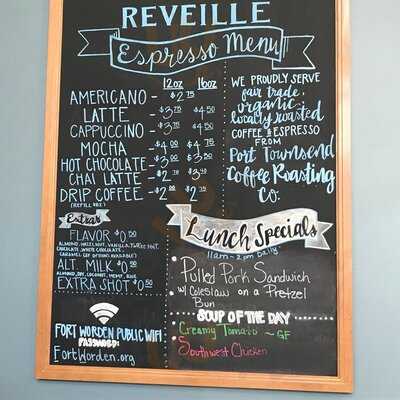 REVEILLE
Espresso Menu
12oz 16oz
AMERICANO - $2.75
LATTE - $3.75 $4.50
CAPPUCCINO - $3.75 $4.50
MOCHA - $4.00 $4.75
HOT CHOCOLATE - $3.00 $3.50
CHAI LATTE - $2.75 $3.40
DRIP COFFEE - $2.00 $2.75
(REFILL 50¢)
WE PROUDLY SERVE
fair trade,
organic,
locally roasted
COFFEE & ESPRESSO
FROM
Port Townsend
Coffee Roasting
Co.
Extras
FLAVOR $0.50
ALMOND, HAZELNUT, VANILLA,
CHOCOLATE, WHITE CHOCOLATE,
CARAMEL (GF OPTIONS AVAILABLE)
ALT. MILK $0.50
ALMOND, SOY, COCONUT, HEMP, RICE
EXTRA SHOT $0.50
FORT WORDEN PUBLIC WIFI
PASSWORD:
FortWorden.org
Lunch Specials
11am - 2pm Daily
• Pulled Pork Sandwich
w/ Coleslaw on a Pretzel
Bun
SOUP OF THE DAY
• Creamy Tomato ~ GF
• Southwest Chicken